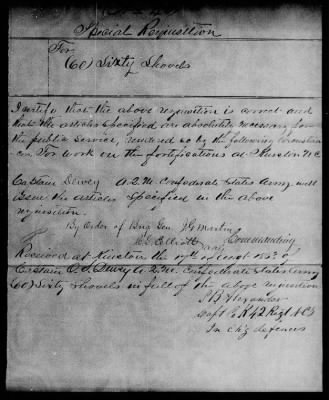 Special Requisition
For
(60) Sixty Shovels
I certify that the above requisition is correct and
that the articles specified are absolutely necessary for
the public service, rendered so by the following circumstan
ces. For work on the fortifications at Kinston N C
Captain Dewey A.Q.M. Confederate States Army will
issue the articles specified in the above
requisition.
By Order of Brig Gen. J G Martin
Commanding
Received at Kinston the 17th of 1863 of
Captain Dewey A.Q.M. Confederate States Army
(60) Sixty shovels in full of the above requisition
S B Alexander
Capt K 42 Regt N C T
In chg defences